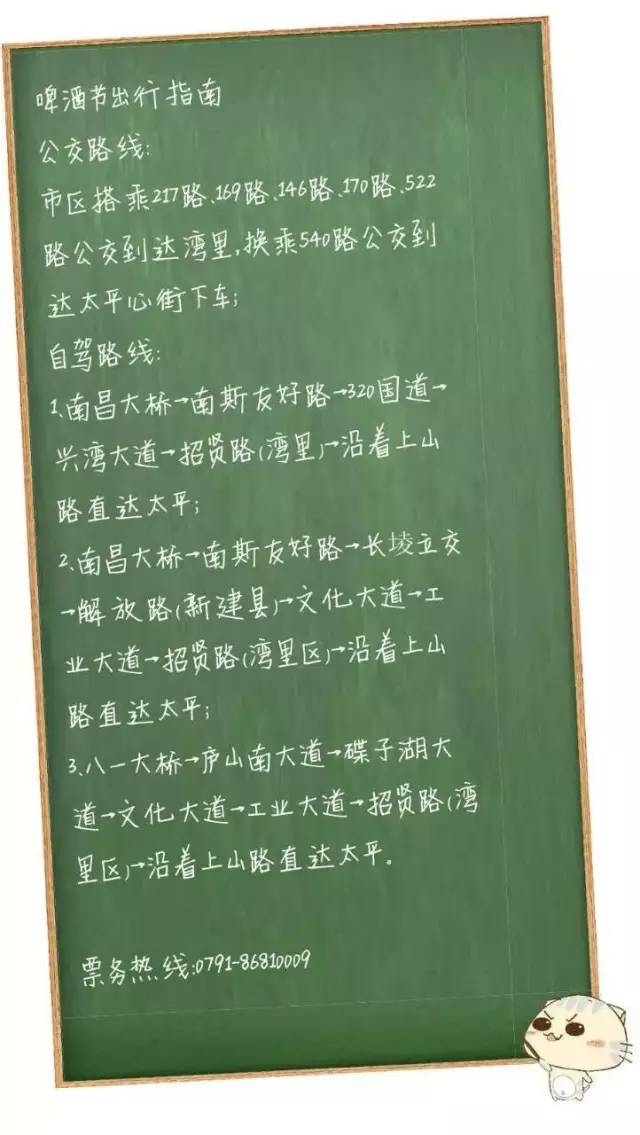 啤酒节出行指南
公交路线:
市区搭乘217路、169路、146路、170路、522
路公交到达湾里,换乘540路公交到
达太平心街下车;
自驾路线:
1、南昌大桥→南斯友好路→320国道→
兴湾大道→招贤路(湾里)→沿着上山
路直达太平;
2、南昌大桥→南斯友好路→长堎立交
→解放路(新建县)→文化大道→工
业大道→招贤路(湾里区)→沿着上山
路直达太平;
3、八一大桥→庐山南大道→碟子湖大
道→文化大道→工业大道→招贤路(湾
里区)→沿着上山路直达太平。
票务热线:0791-86810009